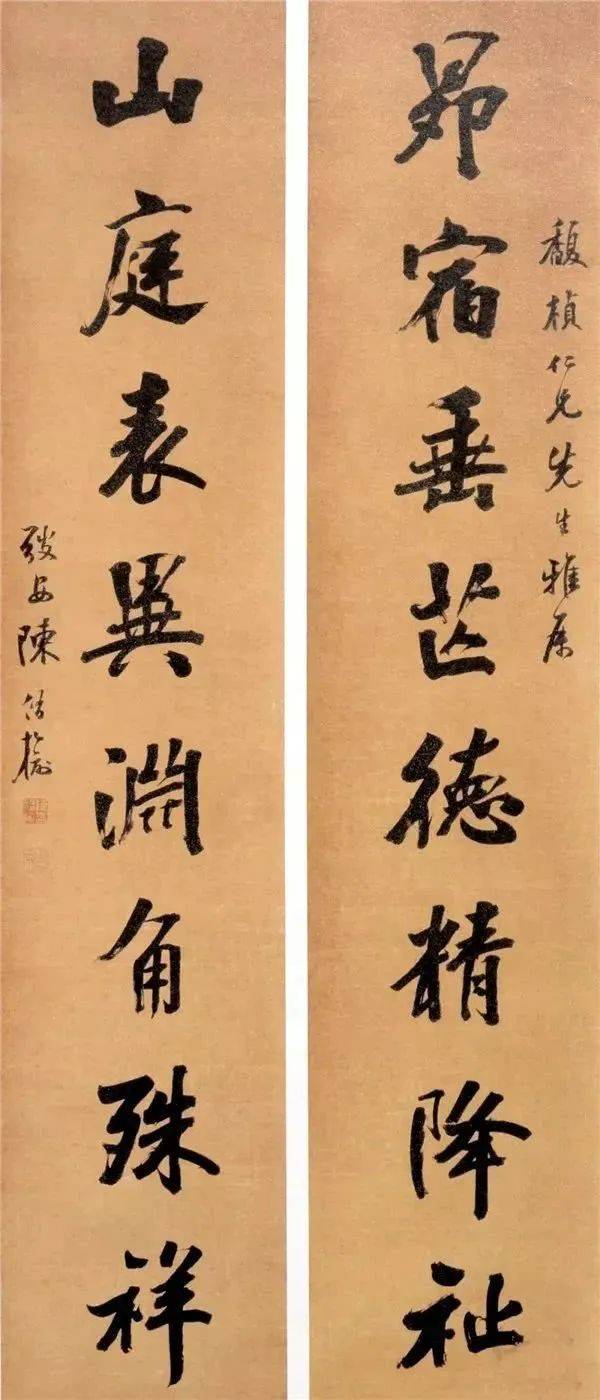 馥楨仁兄先生雅屬
昴宿垂芒德精降祉
山庭表異淵角殊祥
安陳